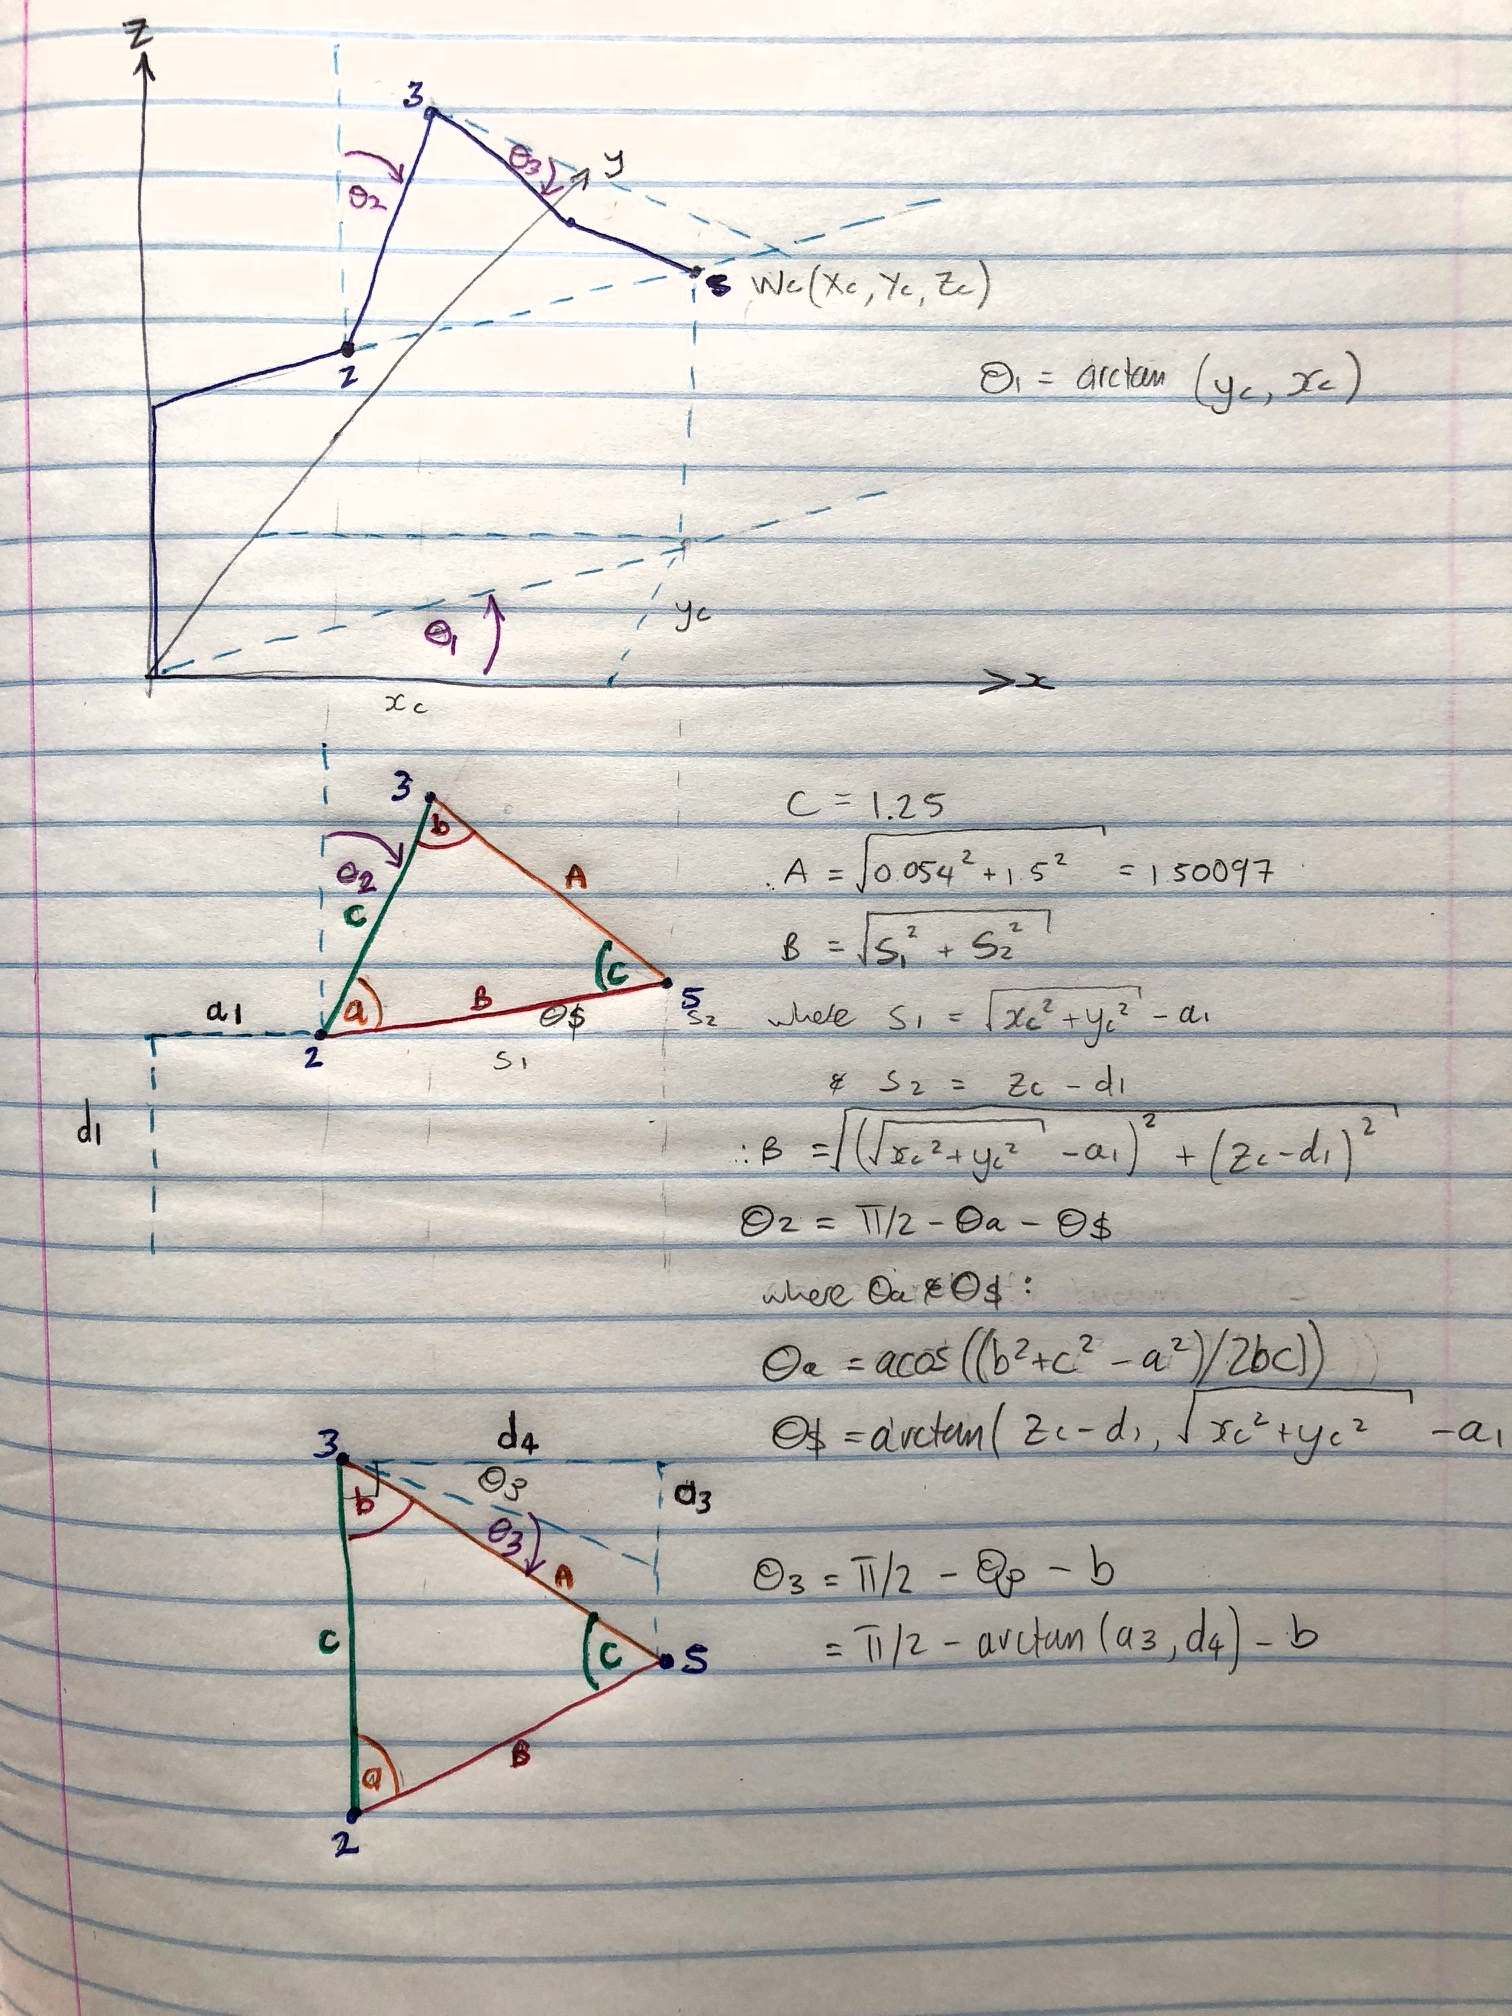 Z
3
θ2
θ3
y
5 Wc(Xc, Yc, Zc)
2
θ1 = arctan (yc, xc)
θ1
yc
x
xc
3
b
θ2
C
A
(c
a
B
θ$
5
S2
S1
a1
2
d1
C = 1.25
A = √0.054² + 1.5² = 1.50097
B = √S1² + S2²
where S1 = √xc² + yc² - a1
& S2 = Zc - d1
∴ B = √(√xc² + yc² - a1)² + (Zc - d1)²
θ2 = π/2 - θa - θ$
where θa & θ$ :
θa = acos((b² + c² - a²)/2bc))
θ$ = arctan( Zc - d1, √xc² + yc² - a1
3
d4
θ3
a3
b
θ3
A
C
(c
5
B
a
2
θ3 = π/2 - θp - b
= π/2 - arctan(a3, d4) - b